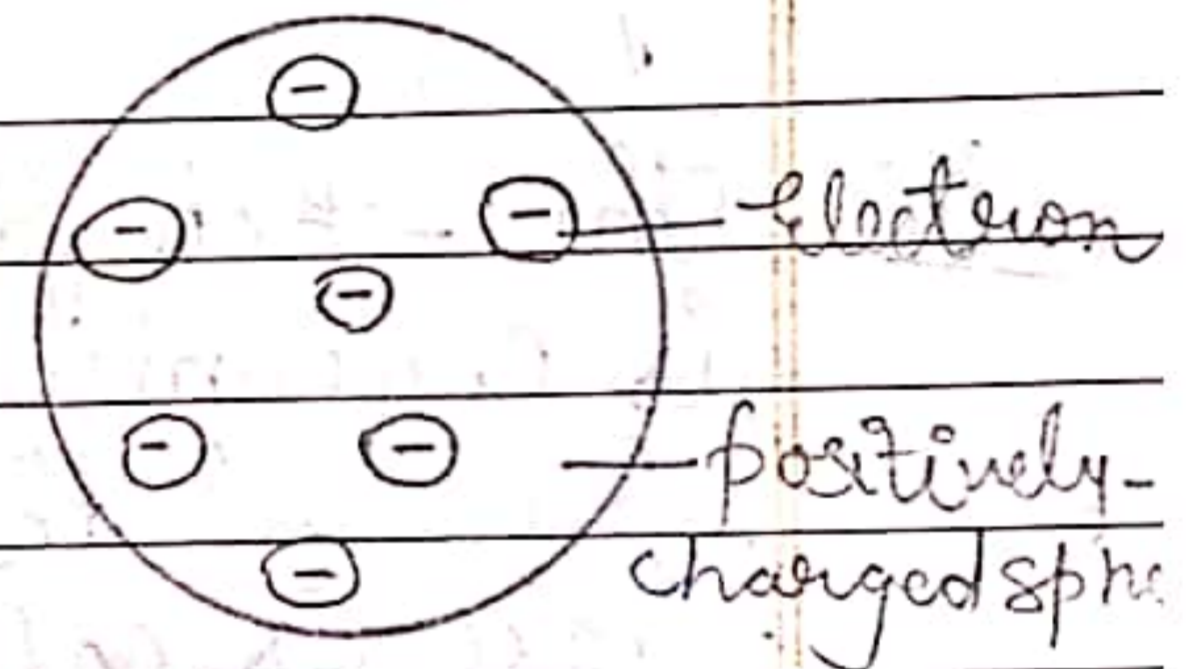 -
-
-
-
-
-
-
Electron
positively-
charged sphe